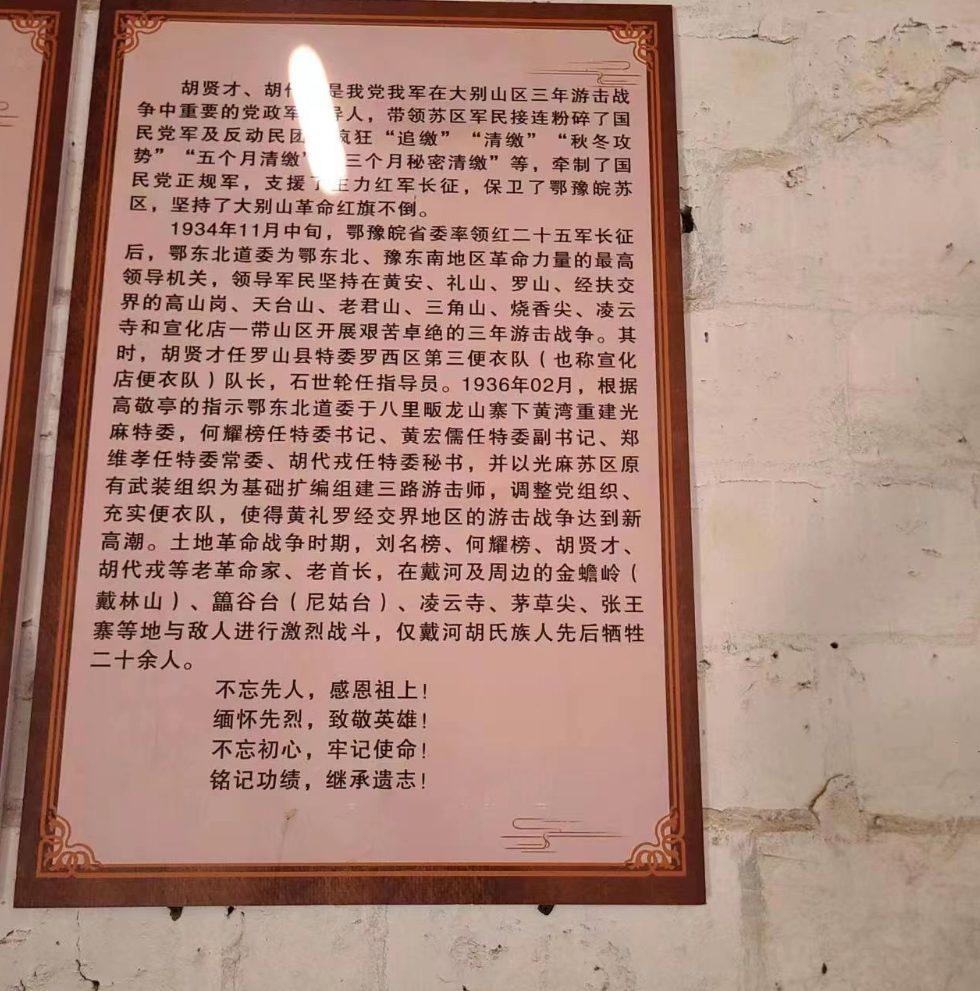 胡贤才、胡代是我党我军在大别山区三年游击战
争中重要的党政军导人，带领苏区军民接连粉碎了国
民党军及反动民团疯狂“追缴”“清缴”“秋冬攻
势”“五个月清缴”三个月秘密清缴”等，牵制了国
民党正规军，支援了主力红军长征，保卫了鄂豫皖苏
区，坚持了大别山革命红旗不倒。
1934年11月中旬，鄂豫皖省委率领红二十五军长征
后，鄂东北道委为鄂东北、豫东南地区革命力量的最高
领导机关，领导军民坚持在黄安、礼山、罗山、经扶交
界的高山岗、天台山、老君山、三角山、烧香尖、凌云
寺和宣化店一带山区开展艰苦卓绝的三年游击战争。其
时，胡贤才任罗山县特委罗西区第三便衣队（也称宣化
店便衣队）队长，石世轮任指导员。1936年02月，根据
高敬亭的指示鄂东北道委于八里畈龙山寨下黄湾重建光
麻特委，何耀榜任特委书记、黄宏儒任特委副书记、郑
维孝任特委常委、胡代戎任特委秘书，并以光麻苏区原
有武装组织为基础扩编组建三路游击师，调整党组织、
充实便衣队，使得黄礼罗经交界地区的游击战争达到新
高潮。土地革命战争时期，刘名榜、何耀榜、胡贤才、
胡代戎等老革命家、老首长，在戴河及周边的金蟾岭（
戴林山）、谷台（尼姑台）、凌云寺、茅草尖、张王
寨等地与敌人进行激烈战斗，仅戴河胡氏族人先后牺牲
二十余人。
不忘先人，感恩祖上！
缅怀先烈，致敬英雄！
不忘初心，牢记使命！
铭记功绩，继承遗志！